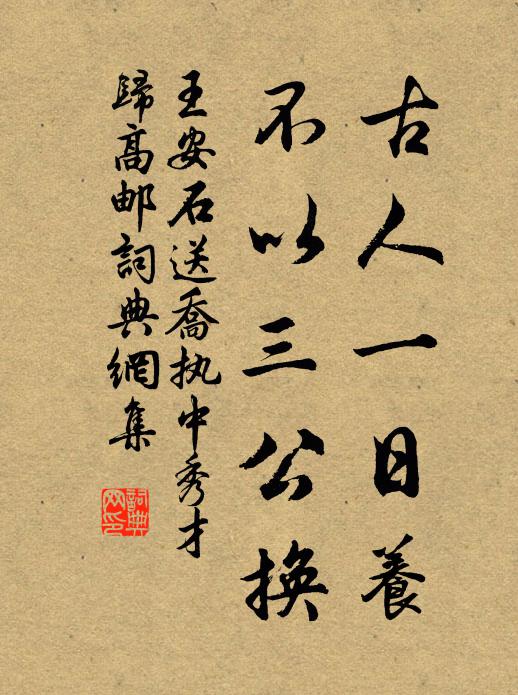 古人一日養
不以三公換
王安石送喬执中秀才
歸高邮詞典網集
詞典
网印